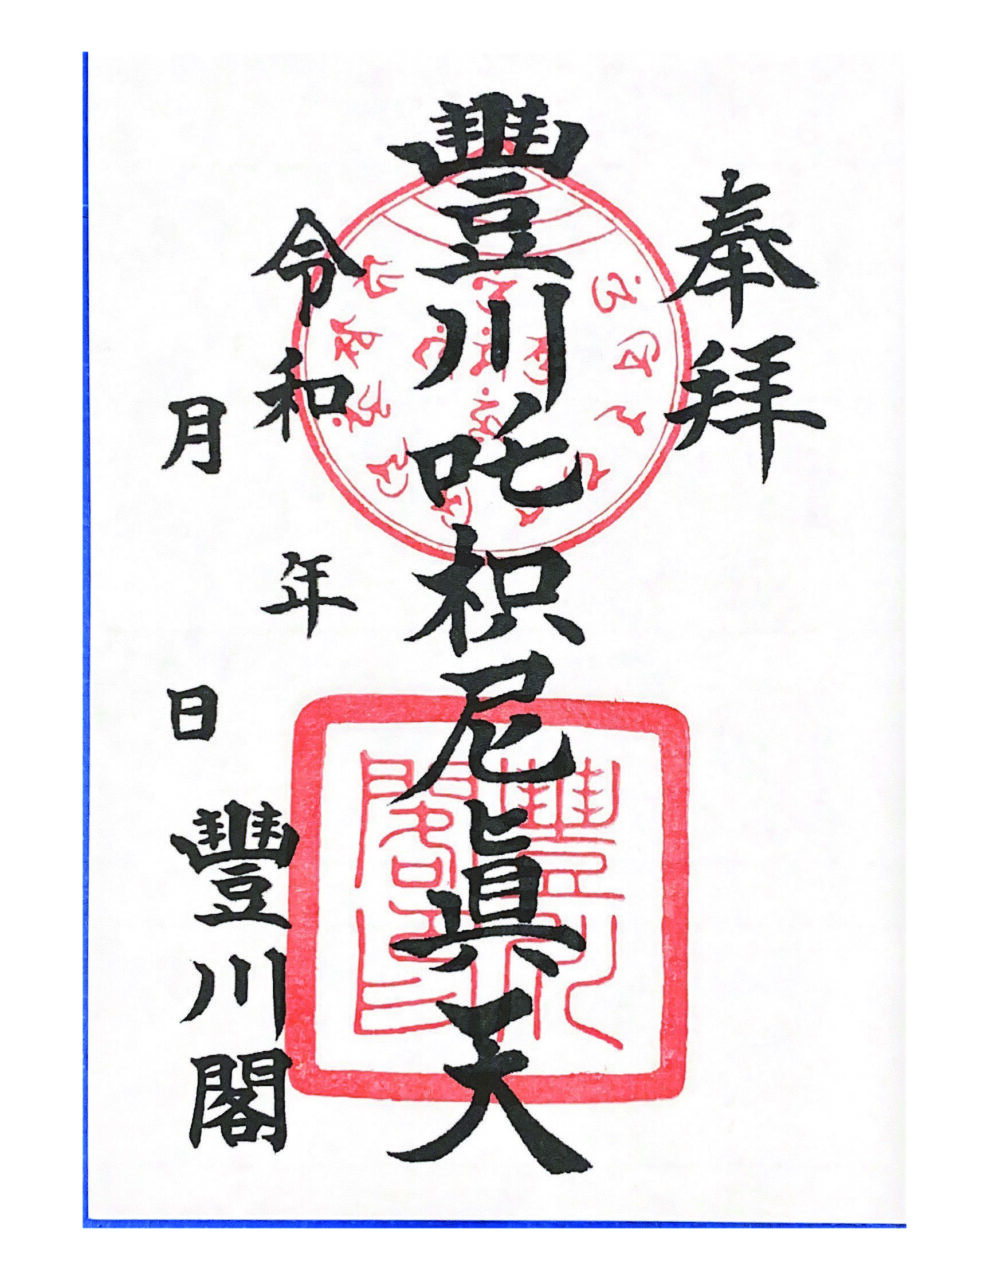 奉拝
豐川吒枳尼眞天
令和 年
月 日
豐川閣
豐川閣印